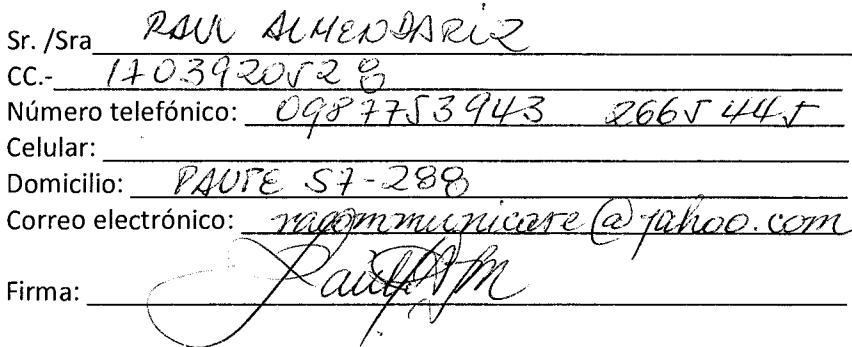 Sr. /Sra RAUL ALMENDARIZ
CC.- 1703920528
Número telefónico: 0987753943 2665445
Celular:
Domicilio: PAUTE S7-288
Correo electrónico: racommunicare@yahoo.com
Firma: